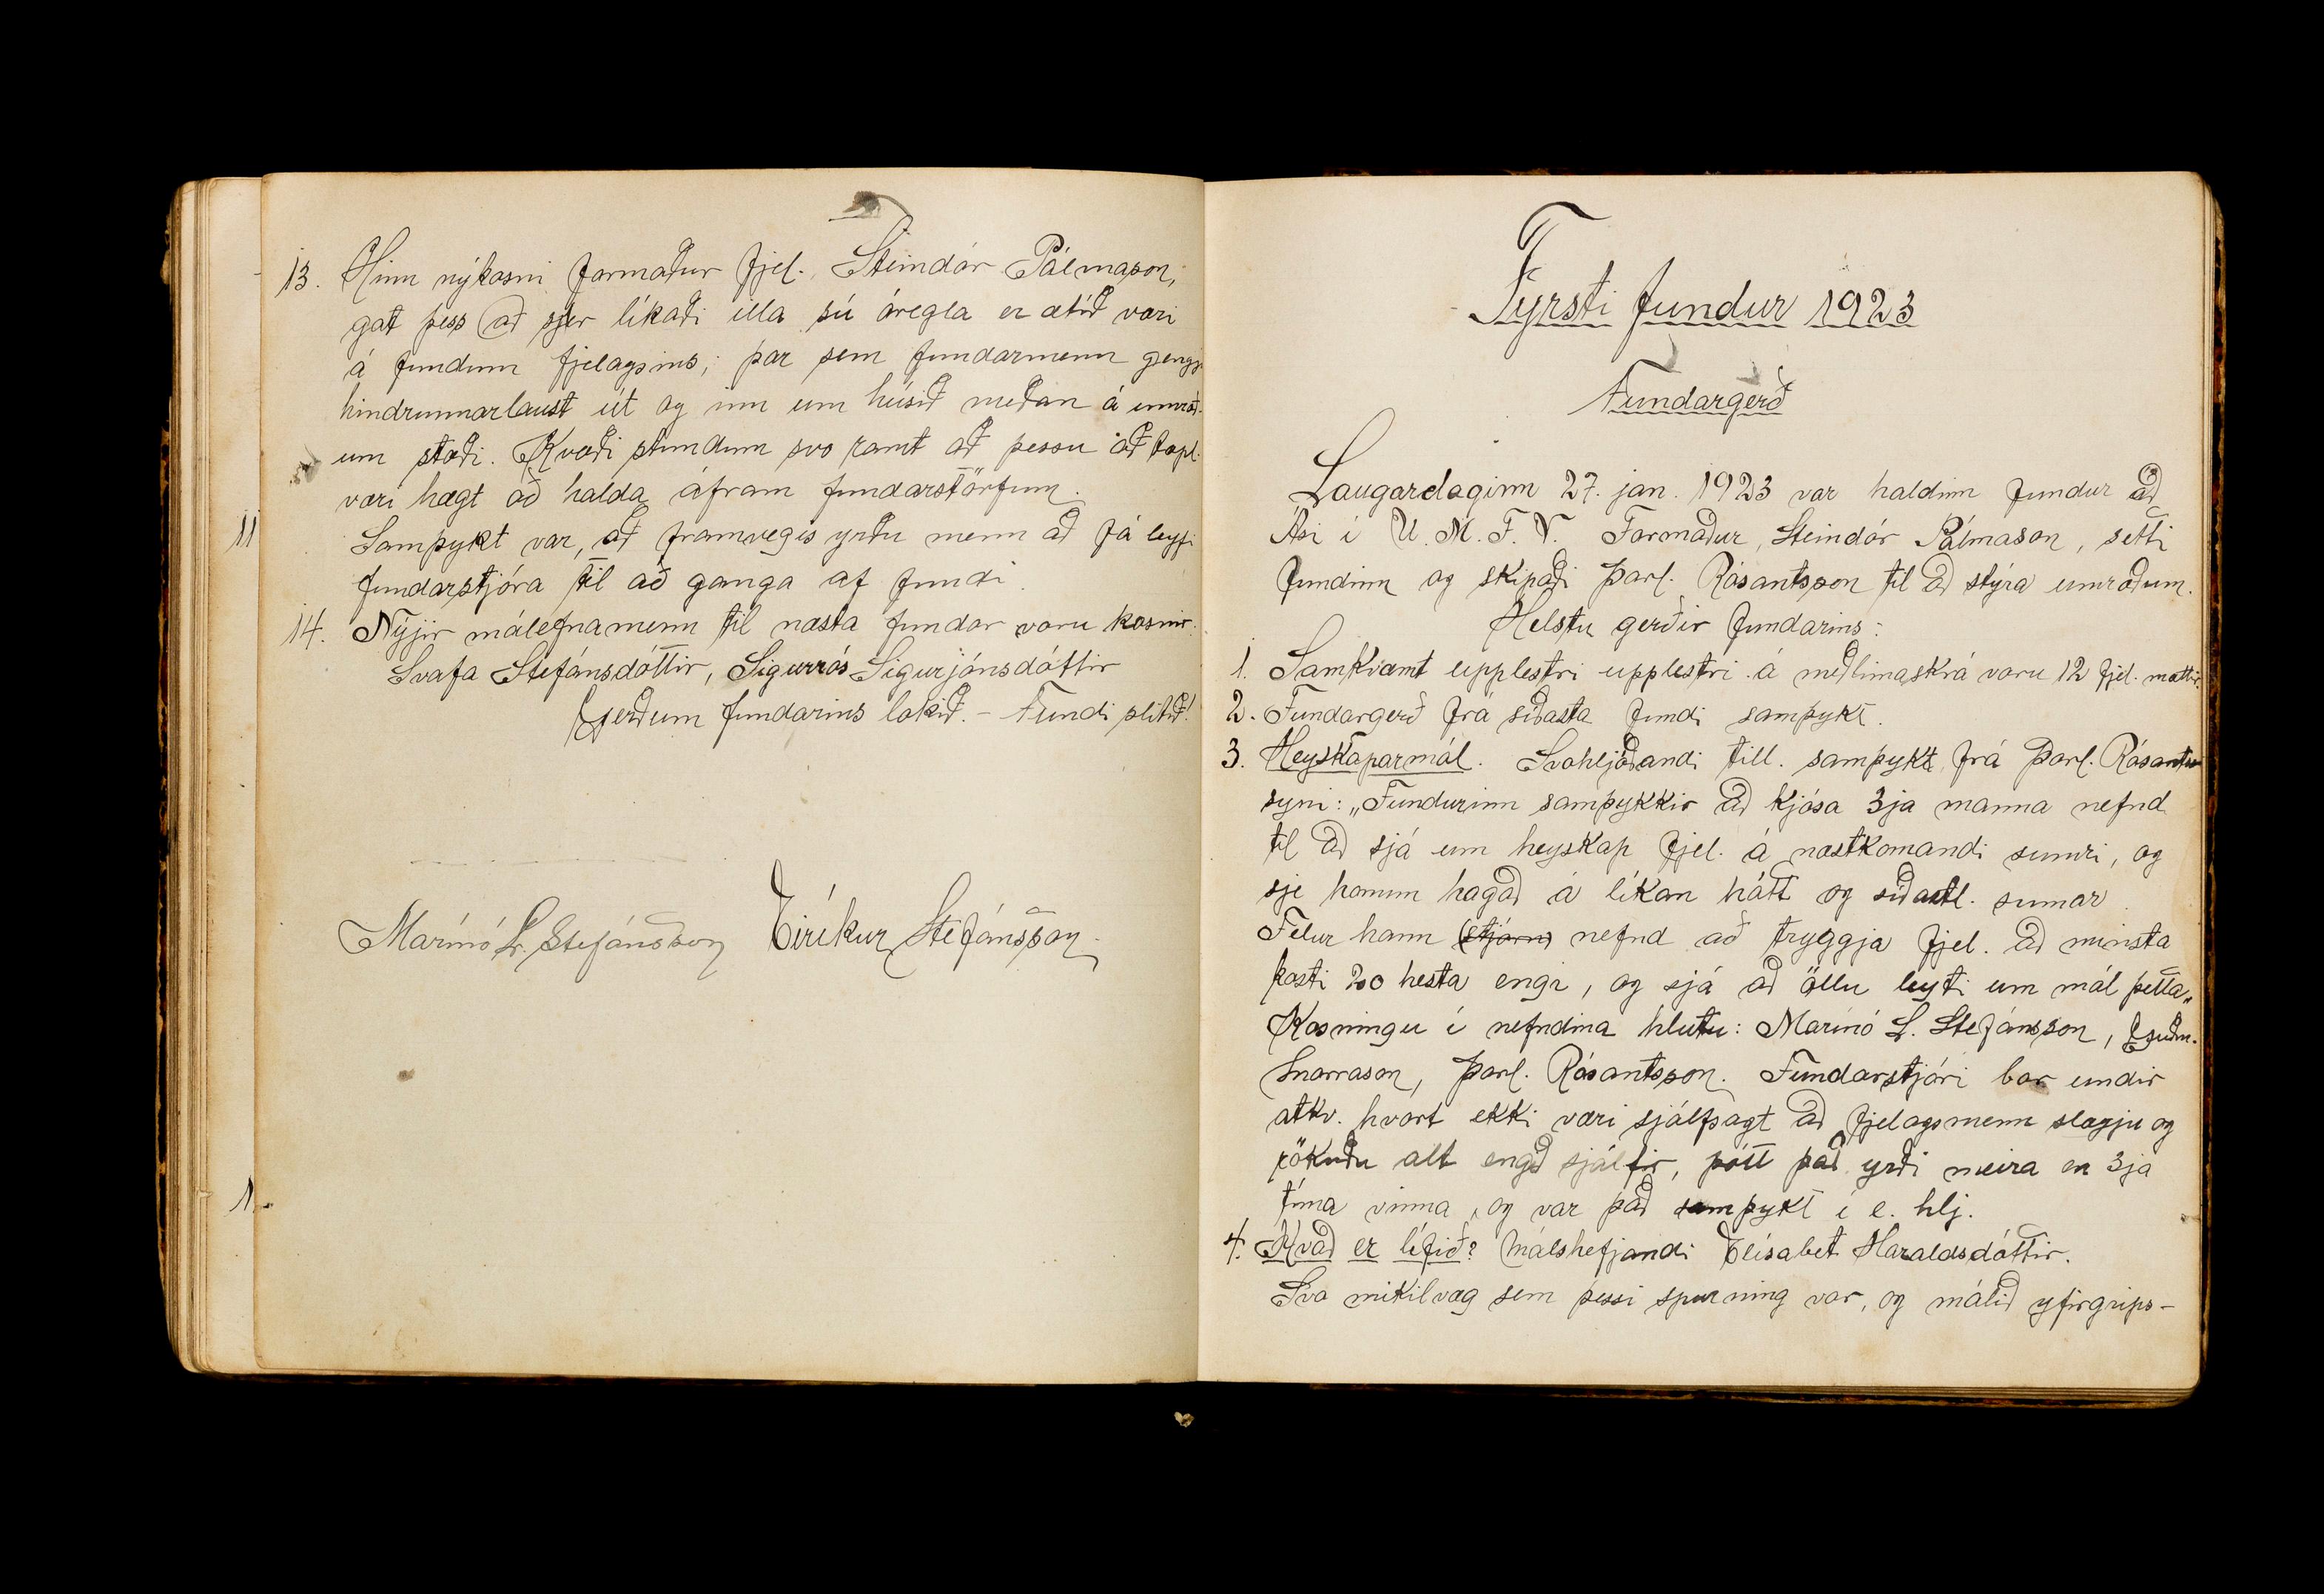 13. Hinn nýkosni formaður fjel. Steindór Pálmason,
gat þess að sjer líkaði illa sú óregla er ætíð væri
á fundum fjelagsins; þar sem fundarmenn gengj
hindrunnarlaust út og inn um húsið meðan á umræð-
um stæði. Kvæði stundum svo ramt að þessu að tapl.
væri hægt að halda áfram fundarstörfum.
Samþykt var, að framvegis yrðu menn að fá leyfi
fundarstjóra til að ganga af fundi.
14. Nýjir málefnamenn til næsta fundar voru kosnir:
Svafa Stefánsdóttir, Sigurrós Sigurjónsdóttir
Gerðum fundarins lokið. - Fundi slitið!
Marinó L. Stefánsson Eiríkur Stefánsson
11
1
Fyrsti fundur 1923
Fundargerð
Laugardaginn 27. jan. 1923 var haldinn fundur að
Ási í U. M. F. V. Formaður, Steindór Pálmason, setti
fundinn og skipaði Þorl. Rósantsson til að stýra umræðum.
Helstu gerðir fundarins:
1. Samkvæmt upplestri upplestri á meðlimaskrá voru 12 fjel. mættir.
2. Fundargerð frá síðasta fundi samþykt.
3. Heyskaparmál. Svohljóðandi till. samþykt frá Þorl. Rósants
syni: „Fundurinn samþykkir að kjósa 3ja manna nefnd
til að sjá um heyskap fjel. á næstkomandi sumri, og
sje honum hagað á líkan hátt og síðastl. sumar.
Felur hann (stjórn) nefnd að tryggja fjel. að minsta
kosti 20 hesta engi, og sjá að öllu leyti um mál þetta„
Kosningu í nefndina hlutu: Marinó L. Stefánsson, Guðm.
Snorrason, Þorl. Rósantsson. Fundarstjóri bar undir
atkv. hvort ekki væri sjálfsagt að fjelagsmenn slægju og
rökuðu alt engið sjálfir, þótt það yrði meira en 3ja
tíma vinna, og var það samþykt í e. hlj.
4. Hvað er lífið? Málshefjandi Elísabet Haraldsdóttir.
Svo mikilvæg sem þessi spurning var, og málið yfirgrips-